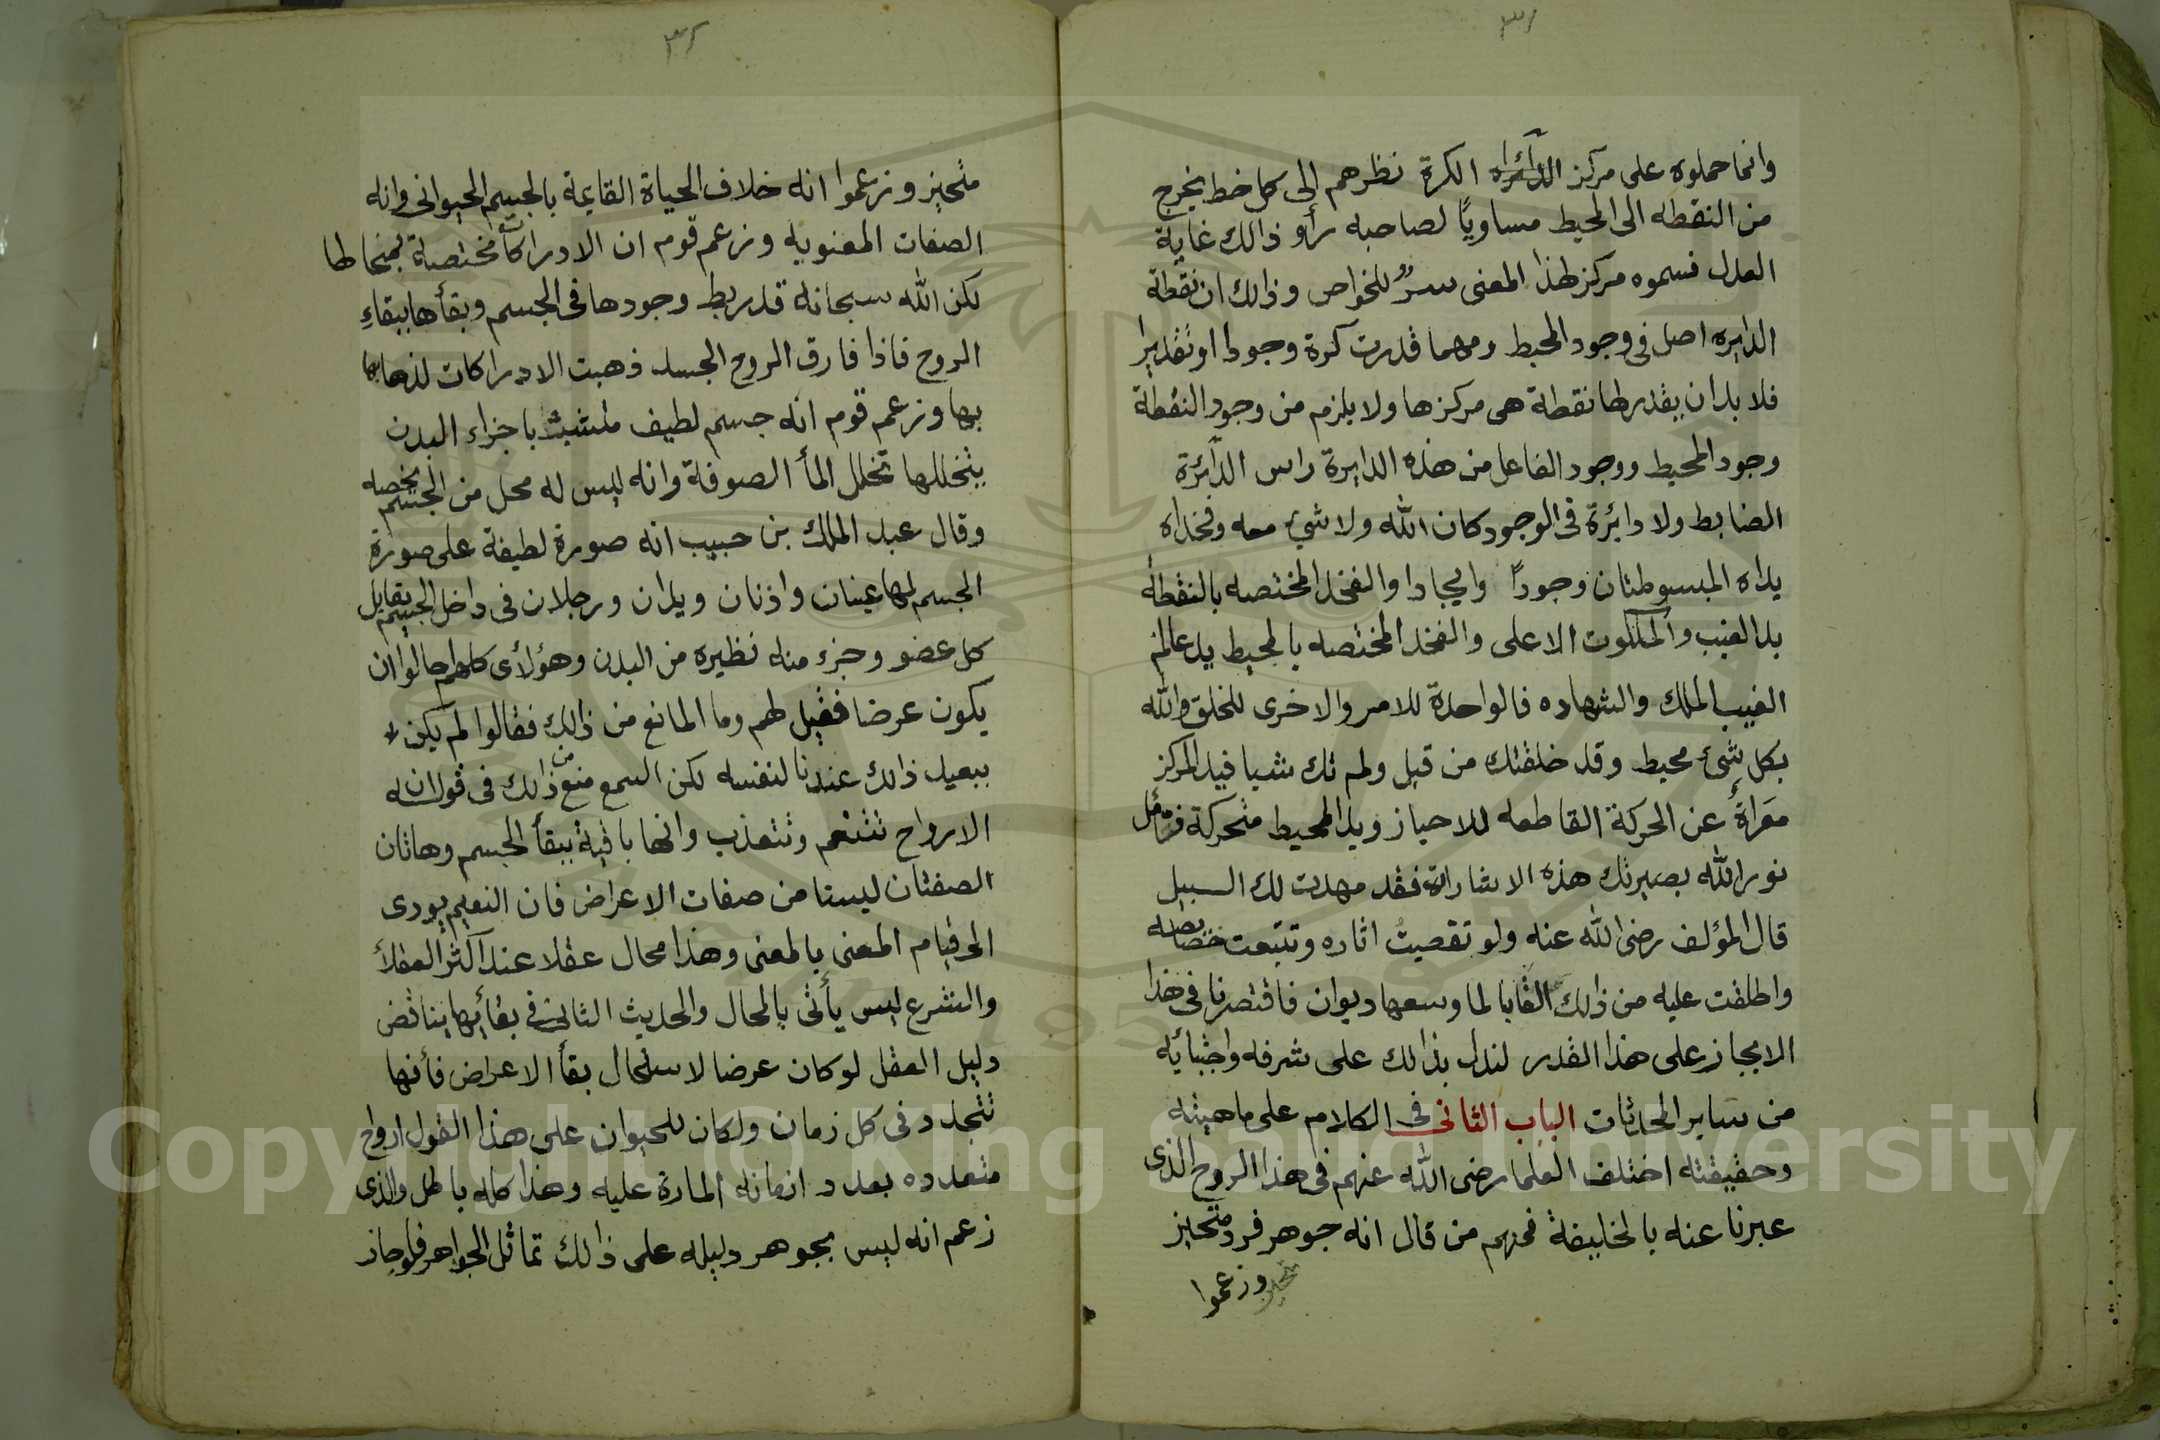 ٣١
وانما حملوه على مركز الدائراه الكرة نظرهم الى كل خط يخرج
من النقطه الى المحيط مساويًا لصاحبه رأو ذالك غاية
العدل فسموه مركز لهذا المعنى سرٌ للخواص وذالك ان نقطة
الدايره اصل فى وجود المحيط ومهما قدرت كرة وجودا او تقديرا
فلا بد ان يقدر لها نقطة هى مركزها ولا يلزم من وجود النقطة
وجود المحيط ووجود الفاعل من هذه الدايرة راس الدآئرة
الضابط ولا دائرة فى الوجود كان الله ولا شيء معه وفخداه
يداه المبسوطتان وجودًا وايجادا والفخد المختصه بالنقطة
يد الغيب والملكوت الاعلى والفخد المختصه بالمحيط يد عالم
الغيب الملك والشهاده فالواحدة للامر والاخرى للخلق والله
بكل شىء محيط وقد خلقتك من قبل ولم تك شيا فيد المركز
معراةً عن الحركة القاطعه للاحياز ويد المحيط متحركة فتأمل
نور الله بصيرتك هذه الاشارات فقد مهدت لك السبيل
قال المؤلف رضى الله عنه ولو تقصيتُ اثاره وتتبعت خصايصه
واطلقت عليه من ذالك القابا لما وسعها ديوان فاقتصرنا فى هذا
الايجاز على هذا القدر لندل بذالك على شرفه واجتبائه
من ساير المحدثات الباب الثانى فى الكلام على ماهيته
وحقيقته اختلف العلما رضى الله عنهم فى هذا الروح الذى
عبرنا عنه بالخليفة فمنهم من قال انه جوهر فرد متحيز
وزعموا
٣٢
متحيز وزعموا انه خلاف الحياة القايمة بالجسم الحيوانى وانه
الصفات المعنويه وزعم قوم ان الادراكات مختصة بمحالها
لكن الله سبحانه قد ربط وجودها فى الجسم وبقأها ببقاءِ
الروح فاذا فارق الروح الجسد ذهبت الادراكات لذهابها
بها وزعم قوم انه جسم لطيف متشبث باجزاء البدن
يتخللها تخلل المأ الصوفة وانه ليس له محل من الجسم يخصه
وقال عبد الملك بن حبيب انه صورة لطيفة على صورة
الجسم لها عينان واذنان ويدان ورجلان فى داخل الجسم يقابل
كل عضو وجزء منه نظيره من البدن وهؤلأى كلهم احالوا ان
يكون عرضا فقيل لهم وما المانع من ذالك فقالوا لم يكن
ببعيد ذالك عندنا لنفسه لكن السمع منع من ذالك فى قوله ان
الارواح تتنعم وتتعذب وانها باقية ببقأ الجسم وهاتان
الصفتان ليستا من صفات الاعراض فان النعيم يودى
الى قيام المعنى بالمعنى وهذا محال عقلا عند اكثر العقلأ
والشرع ليس يأتى بالمحال والحديث الثانى فى بقأيها يناقض
دليل العقل لو كان عرضا لاستحال بقأ الاعراض فأنها
تتجدد فى كل زمان ولكان للحيوان على هذا القول ارواح
متعدده بعدد ازمانه المارة عليه وهذا كله باطل والذى
زعم انه ليس بجوهر دليله على ذالك تماثل الجواهر فلو جاز
Copyright © King Saud University